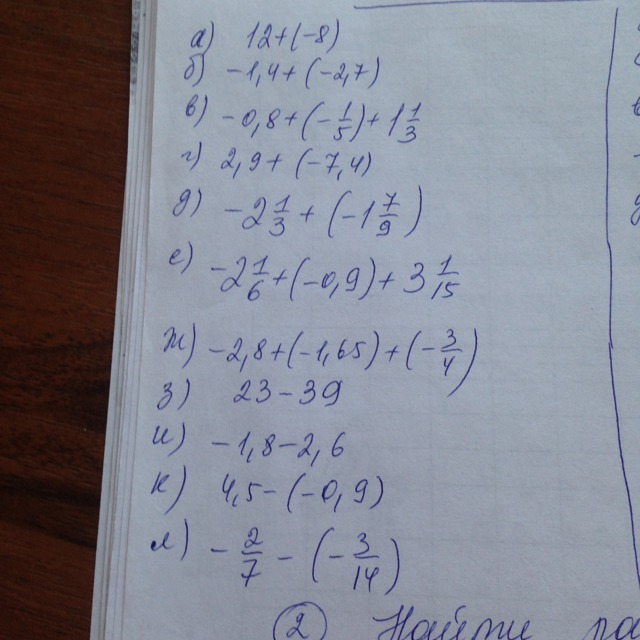 а) 12+(-8)
б) -1,4+(-2,7)
в) -0,8+(-1/5)+1 1/3
г) 2,9+(-7,4)
д) -2 1/3+(-1 7/9)
е) -2 1/6+(-0,9)+3 1/15
ж) -2,8+(-1,65)+(-3/4)
з) 23-39
и) -1,8-2,6
к) 4,5-(-0,9)
л) -2/7-(-3/14)
② Найти